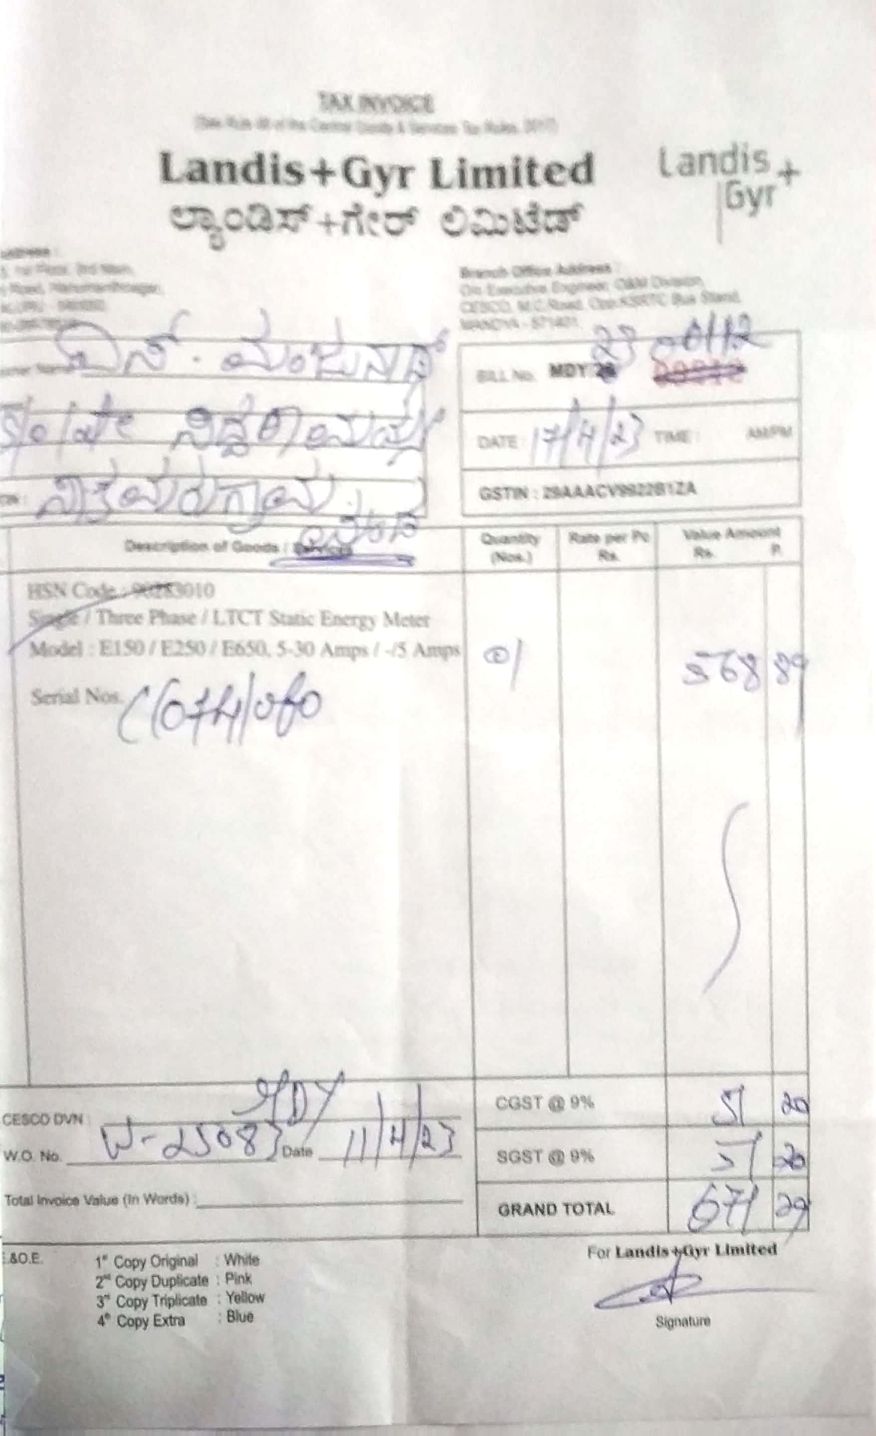 TAX INVOICE
(See Rule 46 of the Central Goods & Services Tax Rules, 2017)
Landis+Gyr Limited
Landis + Gyr
ಲ್ಯಾಂಡಿಸ್+ಗೇರ್ ಲಿಮಿಟೆಡ್
Branch Office Address :
O/o Executive Engineer, O&M Division,
CESCO, M.C.Road, Opp.KSRTC Bus Stand,
MANDYA - 571401.
ಎನ್. ಮಂಜುನಾಥ್
S/o late
BILL No. MDY 23
DATE : 17/4/23 TIME : AM/PM
GSTIN : 29AAACV9922B1ZA
Description of Goods / Services
Quantity (Nos.)
Rate per Pc Rs.
Value Amount Rs. P.
HSN Code : 90283010
Single / Three Phase / LTCT Static Energy Meter
Model : E150 / E250 / E650, 5-30 Amps / -/5 Amps 01 568 89
Serial Nos.
CESCO DVN : MDY
W.O. No. W-25083 Date 11/4/23
Total Invoice Value (In Words) :
CGST @ 9% 51 20
SGST @ 9% 51 20
GRAND TOTAL 671 29
E.&O.E.
1st Copy Original : White
2nd Copy Duplicate : Pink
3rd Copy Triplicate : Yellow
4th Copy Extra : Blue
For Landis+Gyr Limited
Signature